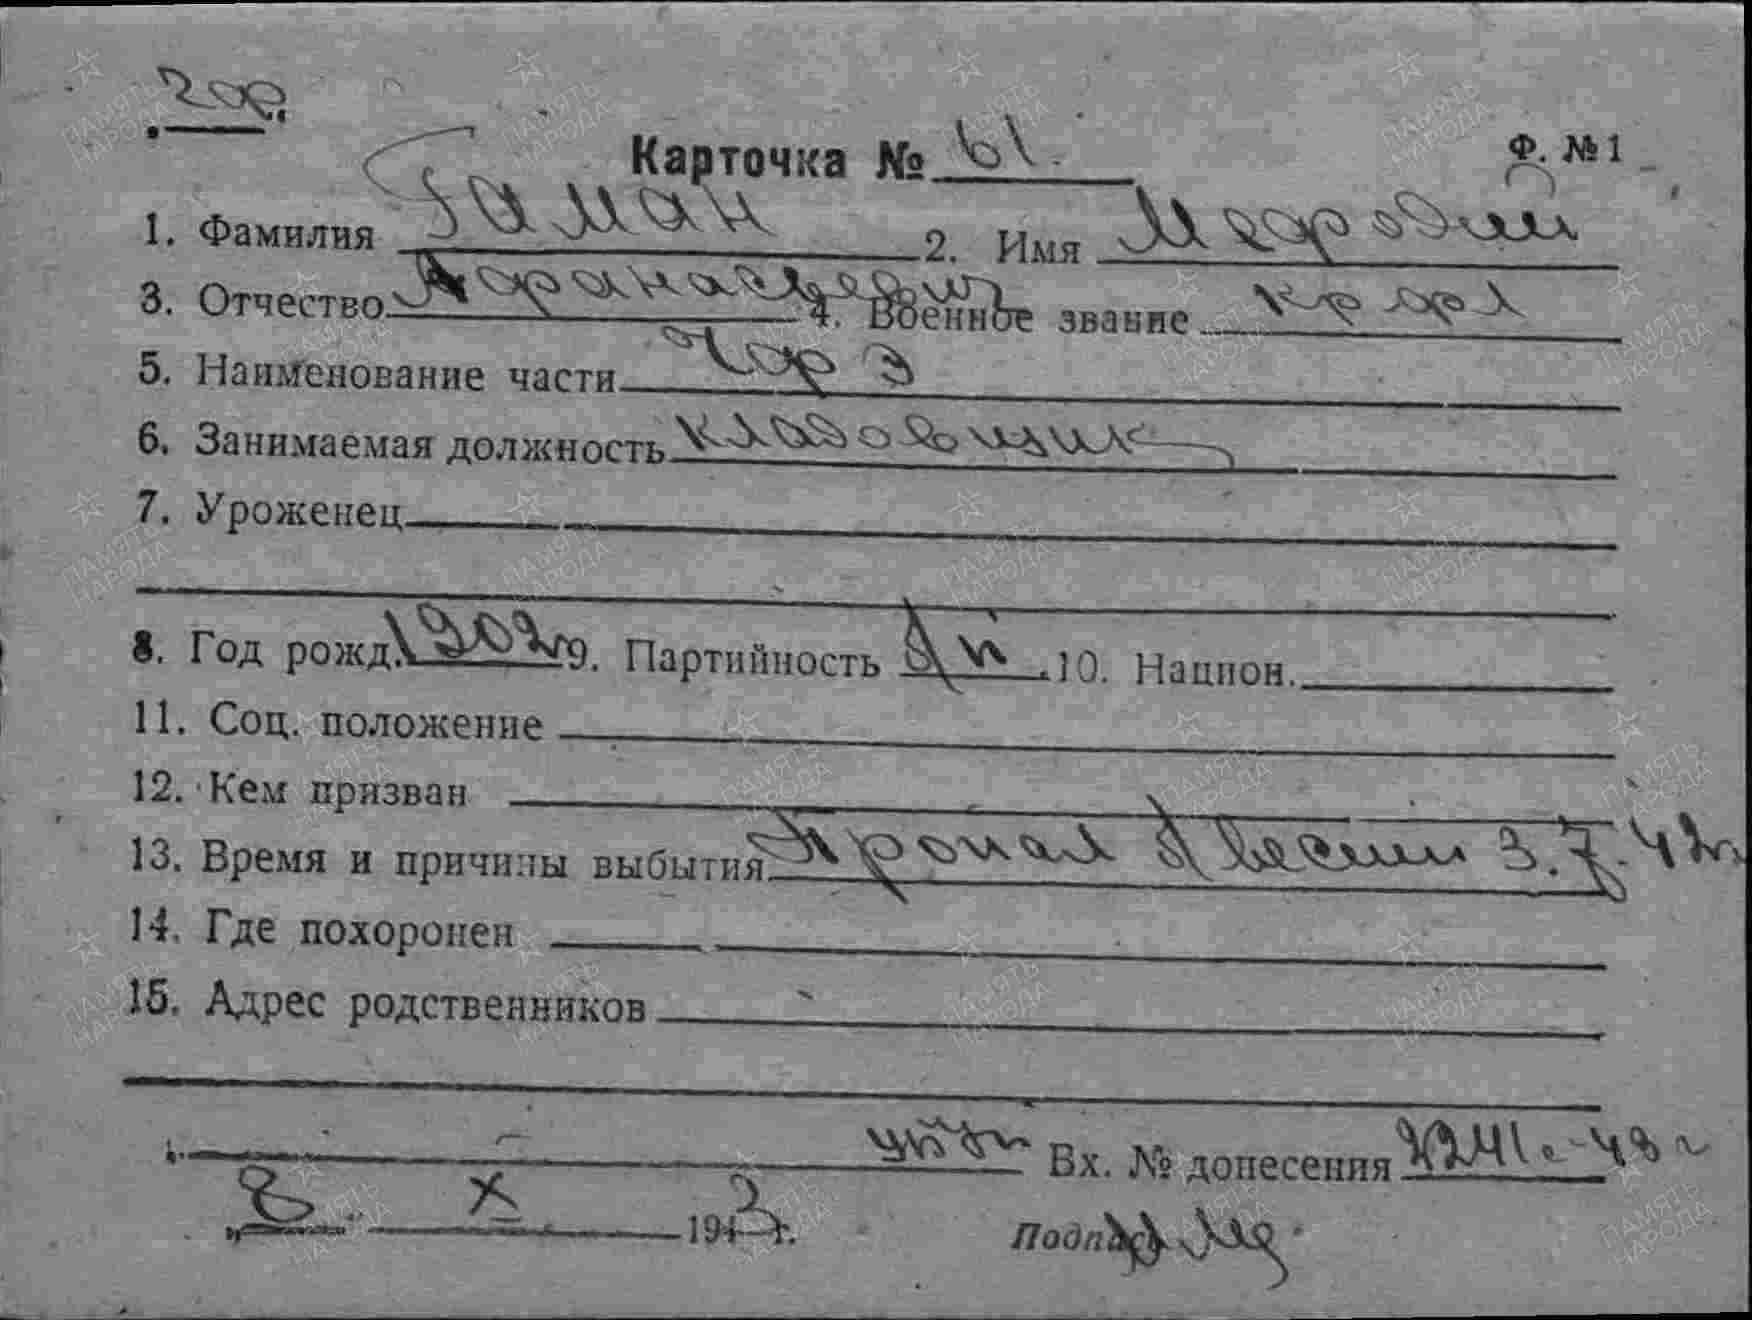 Карточка № 61.
Ф. № 1
1. Фамилия Гаман 2. Имя
3. Отчество Афанасьевич 4. Военное звание кр фл
5. Наименование части Чор
6. Занимаемая должность кладовщик
7. Уроженец
8. Год рожд. 1902 г 9. Партийность б/п .10. Национ.
11. Соц. положение
12. Кем призван
13. Время и причины выбытия Пропал б/вести 3.7.42г.
14. Где похоронен
15. Адрес родственников
Вх. № донесения 2241с-43 г
„8“ X 1943 г.
Подпись